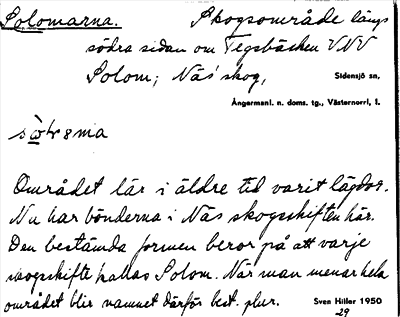 Solomarna. Skogsområde längs
södra sidan om Tegsbäcken VNV
Solom; Näs' skog, Sidensjö sn,
Ångermanl. n. doms. tg., Västernorrl. l.
Området lär i äldre tid varit lägdor.
Nu har bönderna i Näs skogsskiften här.
Den bestämda formen beror på att varje
skogsskifte kallas Solom. När man menar hela
området blir namnet därför best. plur. Sven Hitler 1950
29